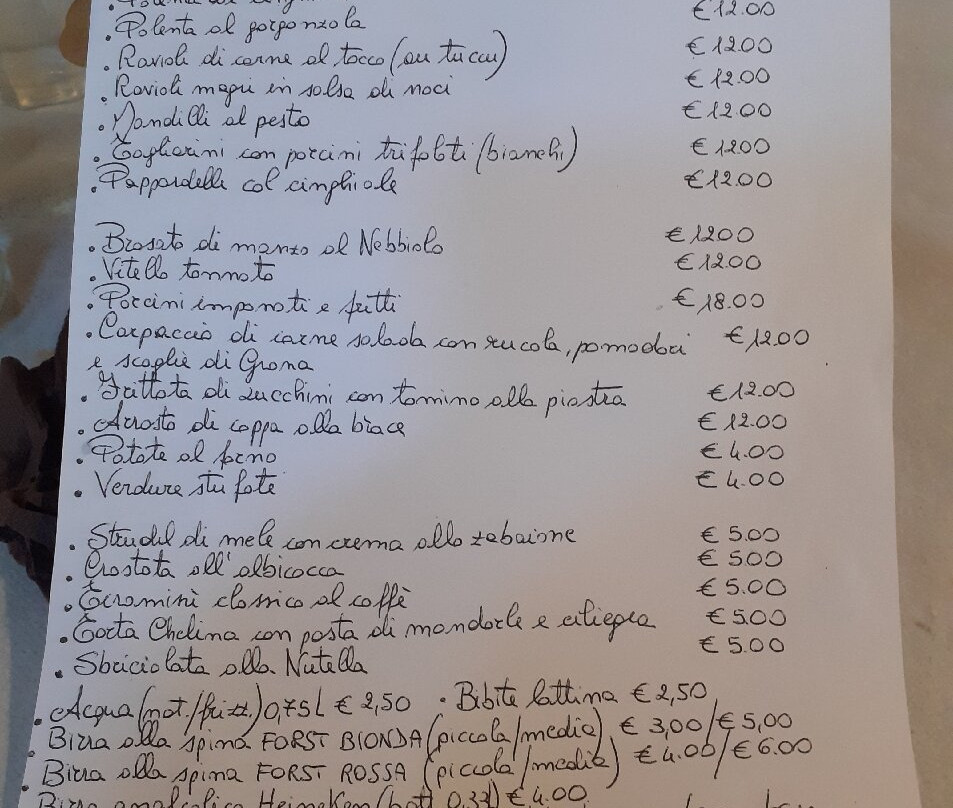 € 12.00
. Polenta al gorgonzola € 12.00
. Ravioli di carne al tocco (au tuccu) € 12.00
. Ravioli magri in salsa di noci € 12.00
. Mandilli al pesto € 12.00
. Tagliarini con porcini trifolati (bianchi) € 12.00
. Pappardelle col cinghiale
. Brasato di manzo al Nebbiolo € 12.00
. Vitello tonnato € 12.00
. Porcini impanati e fritti € 18.00
. Carpaccio di carne salada con rucola, pomodori € 12.00
e scaglie di Grana
. Frittata di zucchini con tomino alla piastra € 12.00
. Arrosto di coppa alla brace € 12.00
. Patate al forno € 4.00
. Verdure stufate € 4.00
. Strudel di mele con crema allo zabaione € 5.00
. Crostata all'albicocca € 5.00
. Tiramisù classico al caffè € 5.00
. Torta Chelina con pasta di mandorle e ciliegia € 5.00
. Sbriciolata alla Nutella € 5.00
. Acqua (nat./frizz.) 0,75 L € 2,50 . Bibite lattina € 2,50
. Birra alla spina FORST BIONDA (piccola/media) € 3,00/€ 5,00
. Birra alla spina FORST ROSSA (piccola/media) € 4.00/€ 6.00
Birra analcolica Heineken (bott 0,33) € 4.00